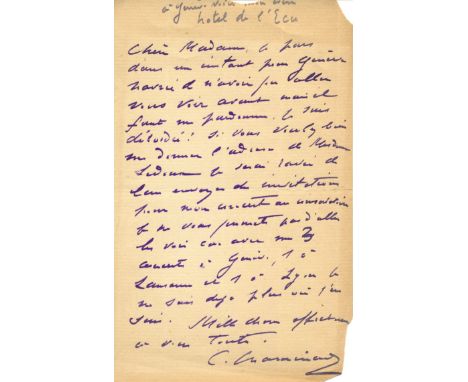 à Genève
hotel de l'Ecu
Chère Madame, je pars
dans un instant pour Genève
navrée de n'avoir pu aller
vous voir avant mais il
faut me pardonner. Je suis
débordée! Si vous voulez bien
me donner l'adresse de Madame
je serai ravie de
leur envoyer des invitations
pour mon concert au conservatoire
je ne vous promets pas d'aller
les voir car avec mes 3
concerts à Genève, 1 à
Lausanne et 1 à Lyon je
ne sais déjà plus où j'en
suis. Mille choses affectueuses
à vous toutes.
C. Chaminade